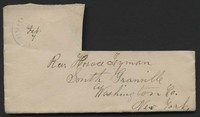 Feb
7
Rev Horace Lyman
South Granville
Washington Co.
New York